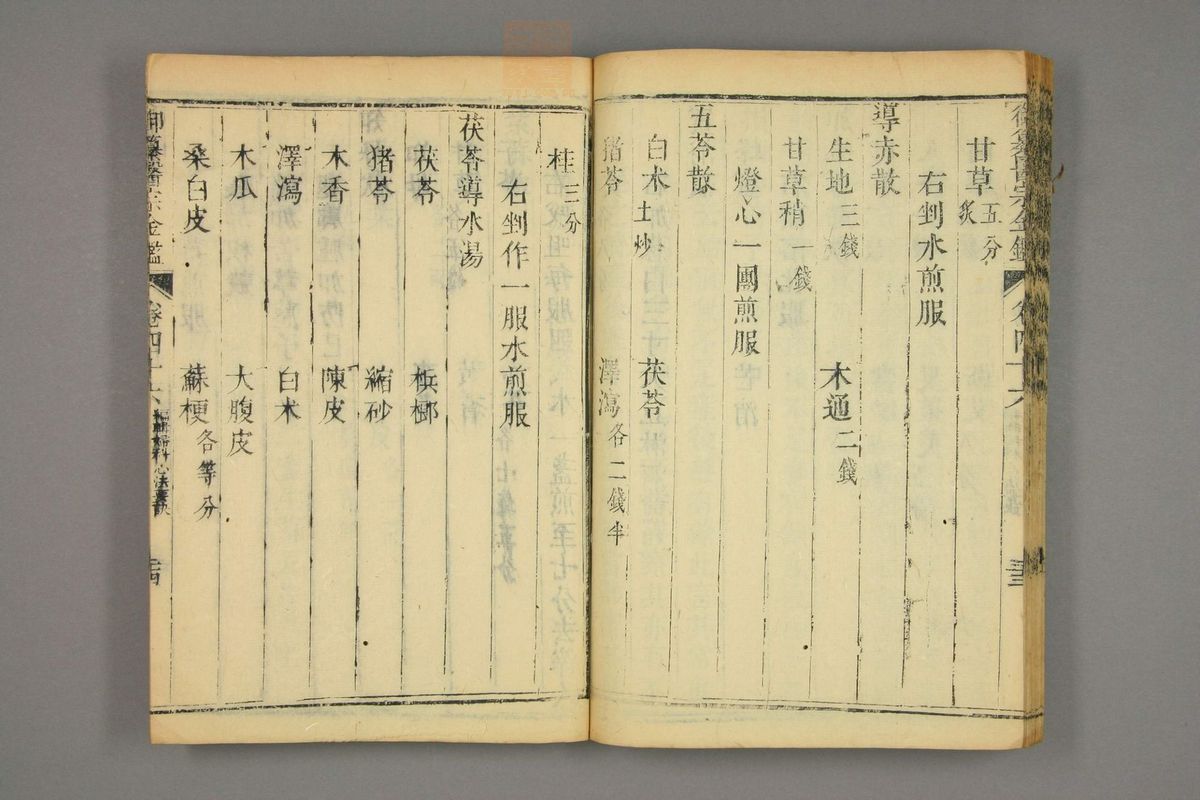 御纂醫宗金鑑 卷四十六
甘草 五分 炙
右剉水煎服
導赤散
生地 三錢 木通 二錢
甘草稍 一錢
燈心一團煎服
五苓散
白朮 土炒 茯苓
猪苓 澤瀉 各二錢半
桂 三分
右剉作一服水煎服
茯苓導水湯
茯苓 檳榔
猪苓 縮砂
木香 陳皮
澤瀉 白朮
木瓜 大腹皮
桑白皮 蘇梗 各等分
御纂醫宗金鑑 卷四十六 編輯婦科心法要訣